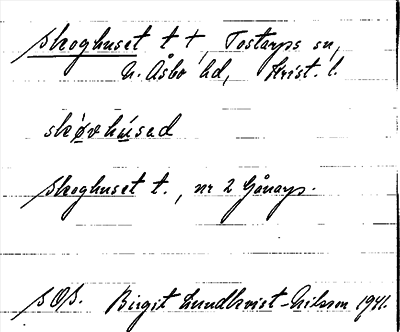 Skoghuset t †, Tostarps sn,
N. Åsbo hd, Krist. l.
skȯvhu̇sed
Skoghuset t., nr 2 Gånarp.
SOÅ. Birgit Lundkvist-Nilsson 1941.